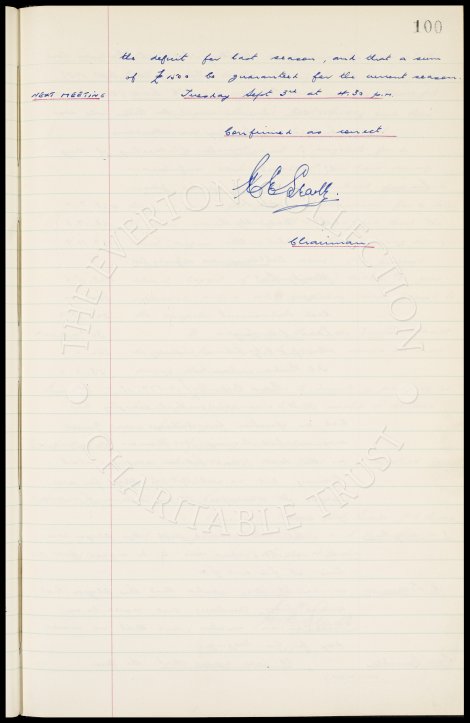 100
the deficit for last season, and that a sum
of £1500 be guaranteed for the current season.
NEXT MEETING Tuesday Sept 3rd at 4.30 p.m.
Confirmed as correct
Chairman
THE EVERTON COLLECTION
CHARITABLE TRUST